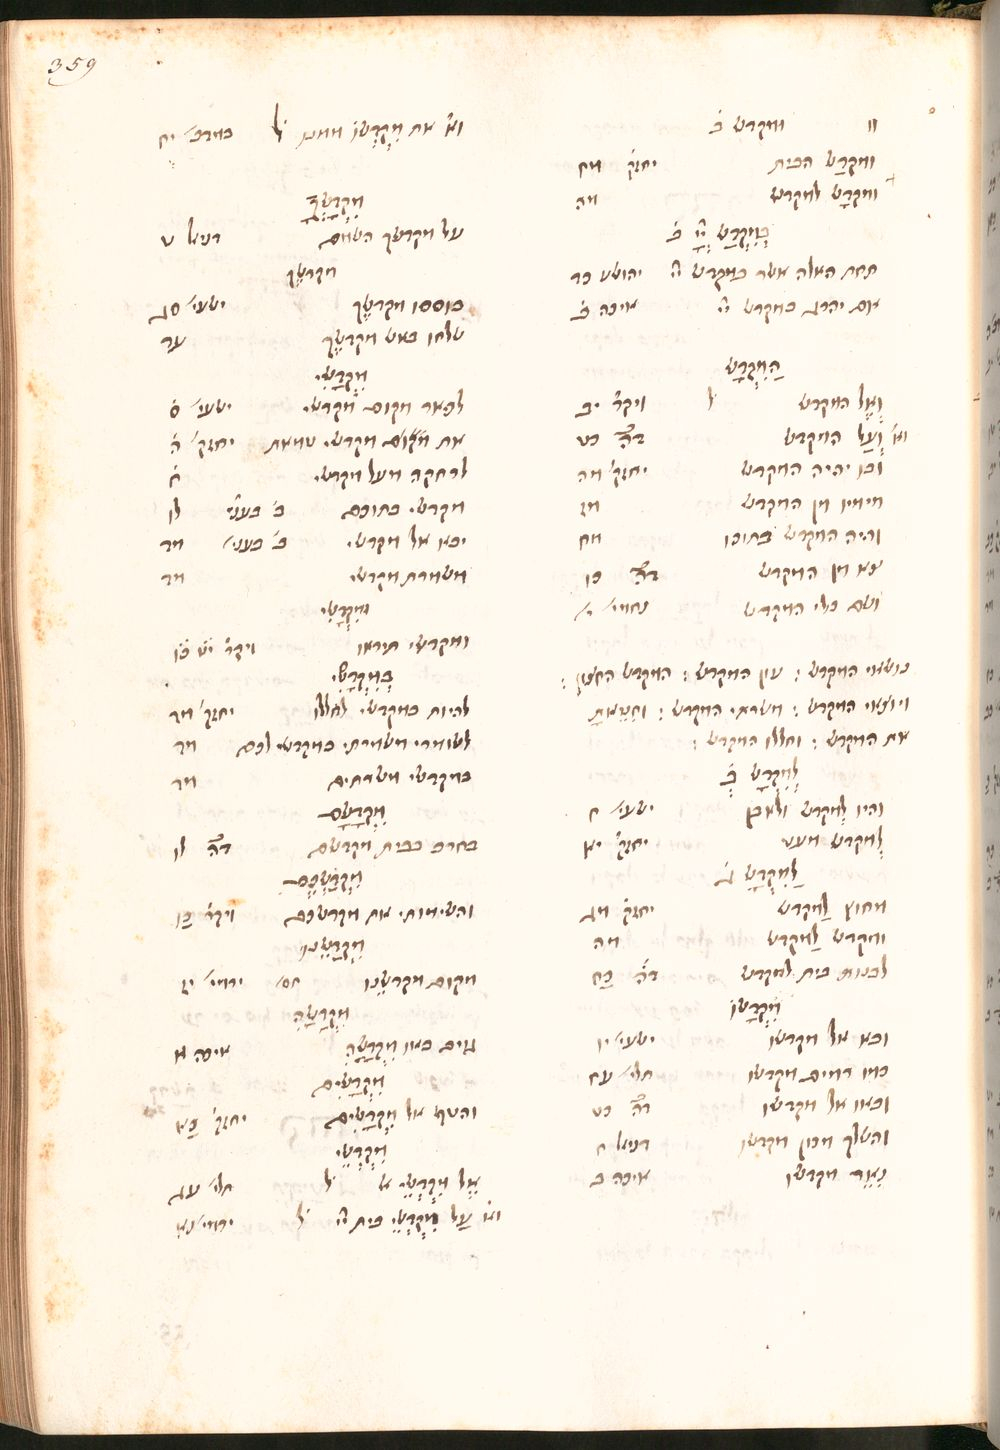 359
וו ומקדש ב֗
ומקדש הבית יחזק׳ מח
ומקדש למקדש מה
במקדש יי֗ ב֗
תחת האלה אשר במקדש יי֗ יהושע כד
אם יהרג במקדש יי֗ איכה ב֗
המקדש
ואל המקדש ל֗ ויקר׳ יב
וא׳ ועל המקדש דה֗ כט
ובו יהיה המקדש יחזק׳ מה
חיצון מן המקדש
והיה המקדש בתוכו מח
צא מן המקדש דה֗ כו
ושם כלי המקדש נחמי׳ י׳
נושאי המקדש : עון המקדש : המקדש החצון :
ויוצאי המקדש : משרתי המקדש : וחטאת
את המקדש : וחללו המקדש :
למקדש ב֗
והיה למקדש ולאבן ישעי׳ ח
למקדש מעט יחזק׳ יא
למקדש ג֗
מחוץ למקדש יחזק׳ מג
ומקדש למקדש מה
לבנות בית למקדש דה֗ כח
מקדשו
ובא אל מקדשו ישעי׳ יו
כמו רמים מקדשו תלי׳ עח
ובאו אל מקדשו דה֗ כט
והשלך מכון מקדשו דניאל ח
נאר מקדשו איכה ב
וא׳ את מקדשו ממנו ל֗ במדב׳ יח
מקדשך
על מקדשך השמם דניאל ט
מקדשך
בוססו מקדשך ישעי׳ סג
שלחו באש מקדשך עד
מקדשי
לפאר מקום מקדשי ישעי׳ ס֗
את מקדשי טמאת יחזק׳ ה֗
לרחקה מעל מקדשי ח֗
מקדשי בתוכם ב׳ בענ׳ לו
יבאו אל מקדשי ב׳ בעני׳ מד
משמרת מקדשי מד
ומקדשי
ומקדשי תיראו ויקר׳ יט֗ כו֗
במקדשי
להיות במקדשי לחללו יחזק׳ מד
לשומרי משמרתי במקדשי לכם מד
במקדשי משרתים מד
מקדשם
בחרב בבית מקדשם דה֗ לו
מקדשכם
והשימותי את מקדשכם ויקר׳ כו
מקדשנו
מקום מקדשנו חס׳ ירמי׳ יז
מקדשה
גוים באו מקדשה איכה א
מקדשים
והטף אל מקדשים יחזק׳ כא
מקדשי
אל מקדשי א׳ ל֗ תלי׳ עג
וא׳ על מקדשי בית יי֗ ל֗ ירמי׳ נא